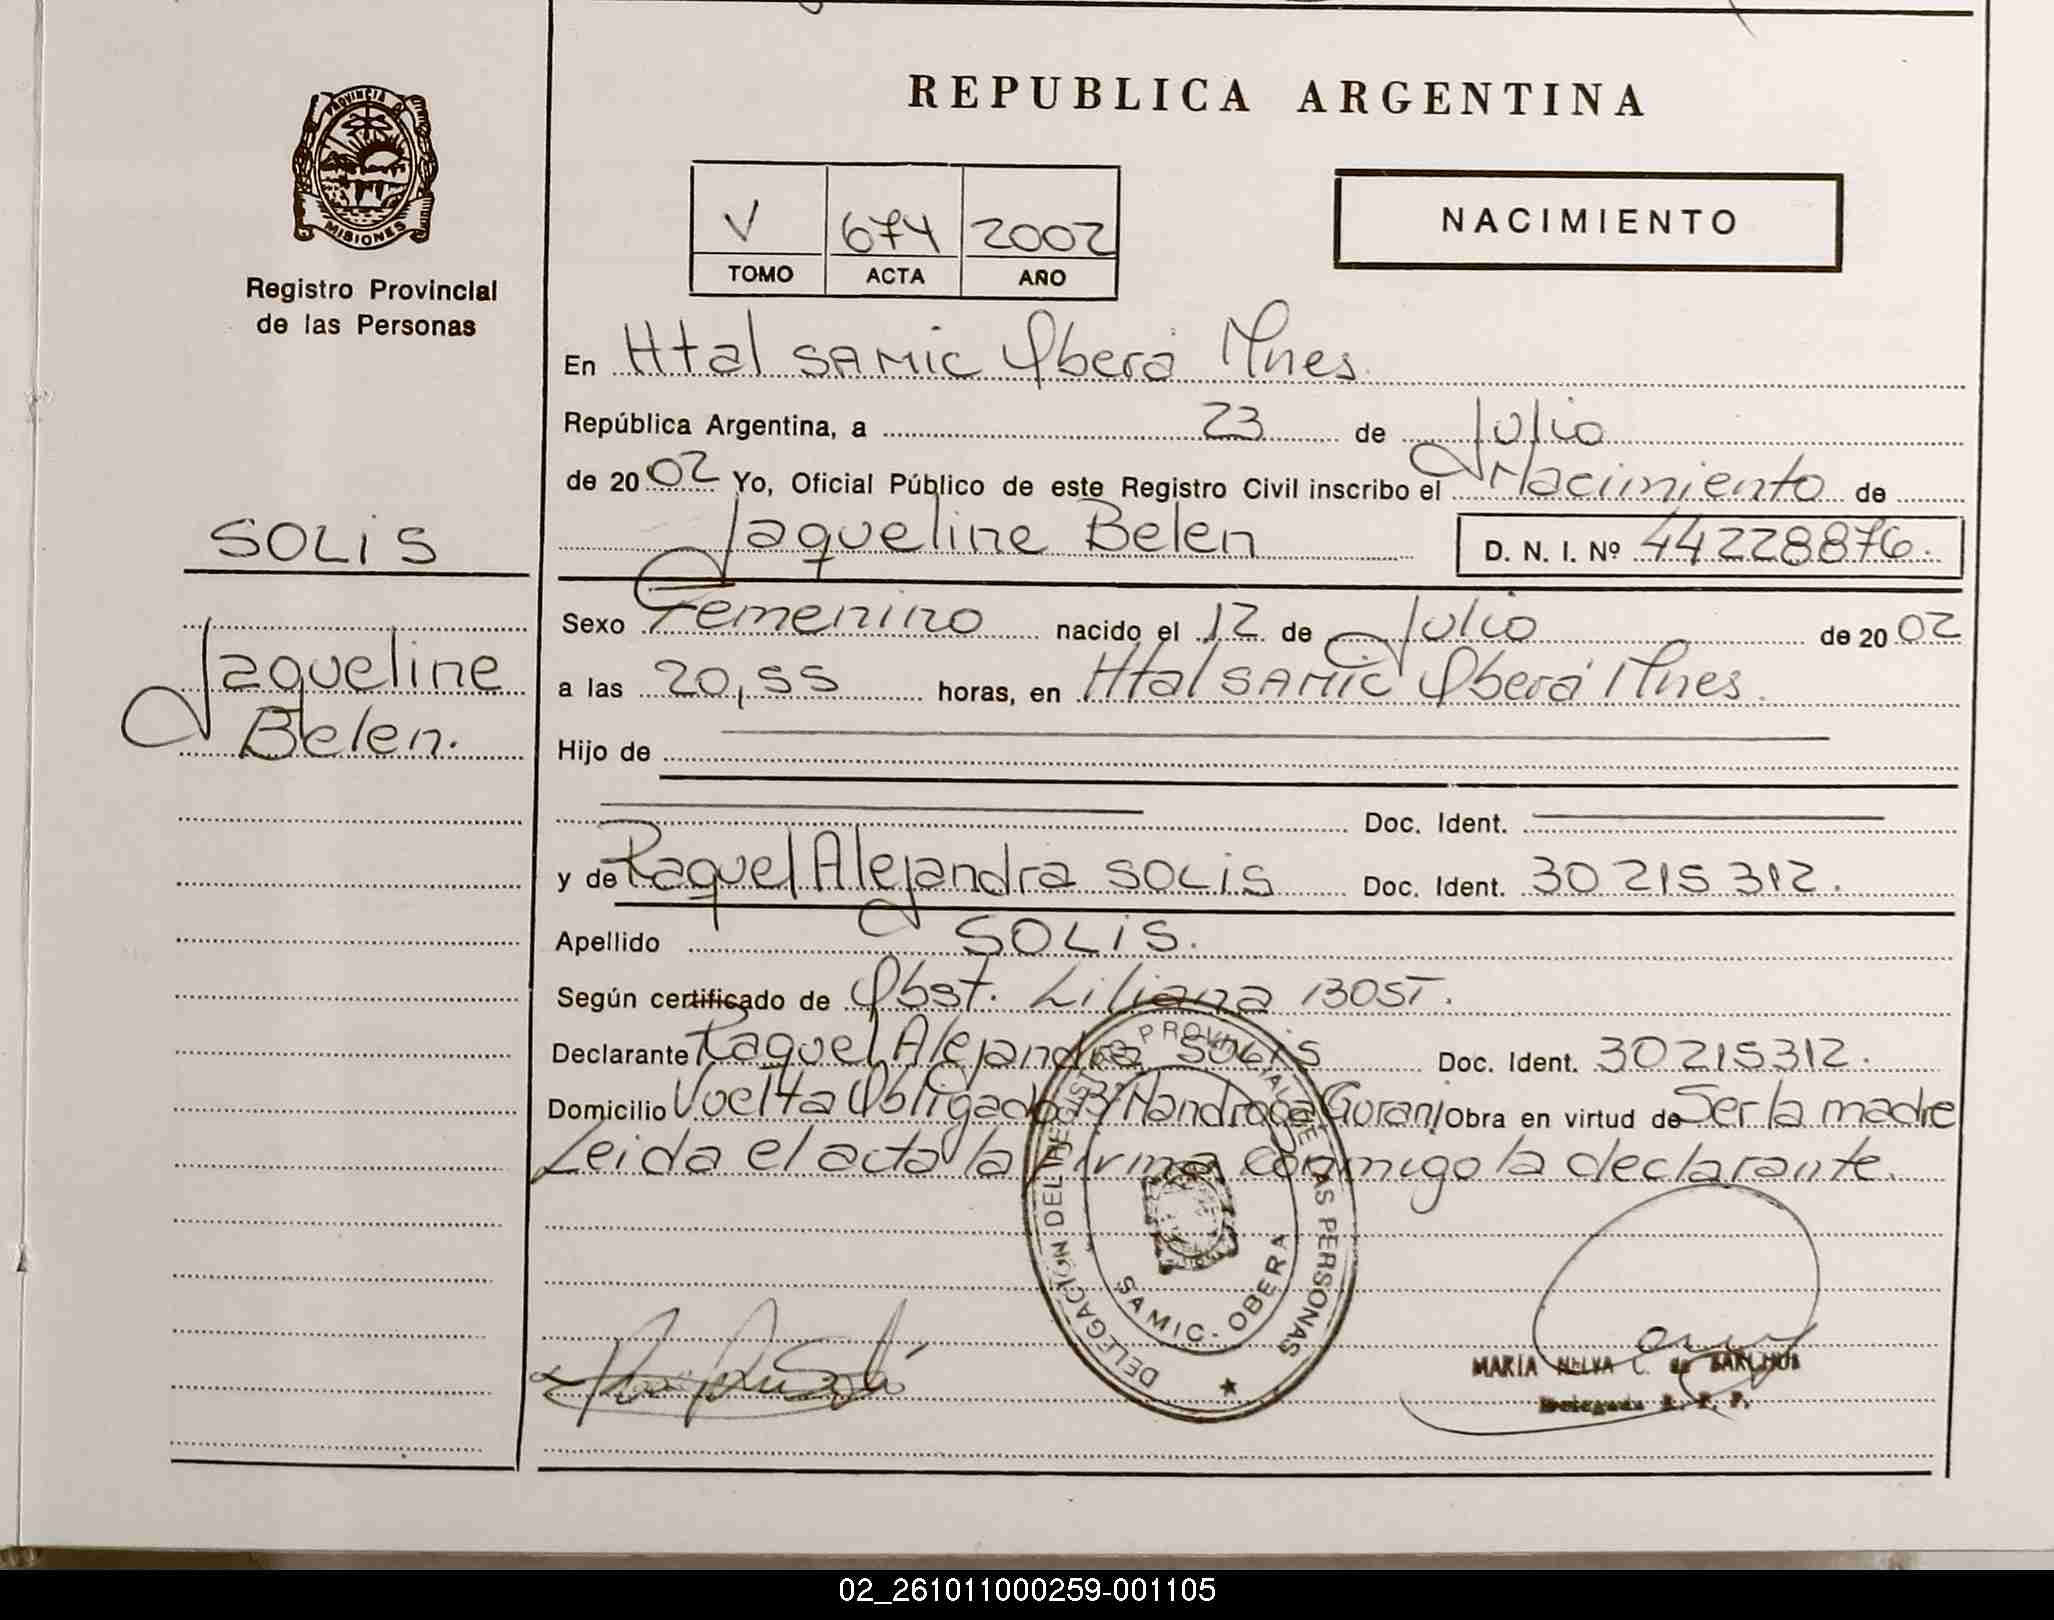 REPUBLICA ARGENTINA
PROVINCIA D
MISIONES
Registro Provincial
de las Personas
V 674 2002
TOMO ACTA AÑO
NACIMIENTO
En Htal SAMIC Oberá Mnes.
República Argentina, a 23 de Julio
de 2002 Yo, Oficial Público de este Registro Civil inscribo el Nacimiento de
Jaqueline Belen D. N. I. Nº 44228876.
SOLIS
Jaqueline
Belen.
Sexo Femenino nacido el 12 de Julio de 2002
a las 20,55 horas, en Htal SAMIC Oberá Mnes.
Hijo de
Doc. Ident.
y de Raquel Alejandra SOLIS Doc. Ident. 30 215 312.
Apellido SOLIS.
Según certificado de Obst. Liliana BOST.
Declarante Raquel Alejandra SOLIS Doc. Ident. 30215312.
Domicilio Vuelta Obligado B/ Guraní Obra en virtud de Ser la madre
Leida el acta la firma conmigo la declarante.
DELEGACION DEL REGISTRO PROVINCIAL DE LAS PERSONAS
SAMIC - OBERA
MARIA NELVA C. de
Delegada R. P. P.
02_261011000259-001105